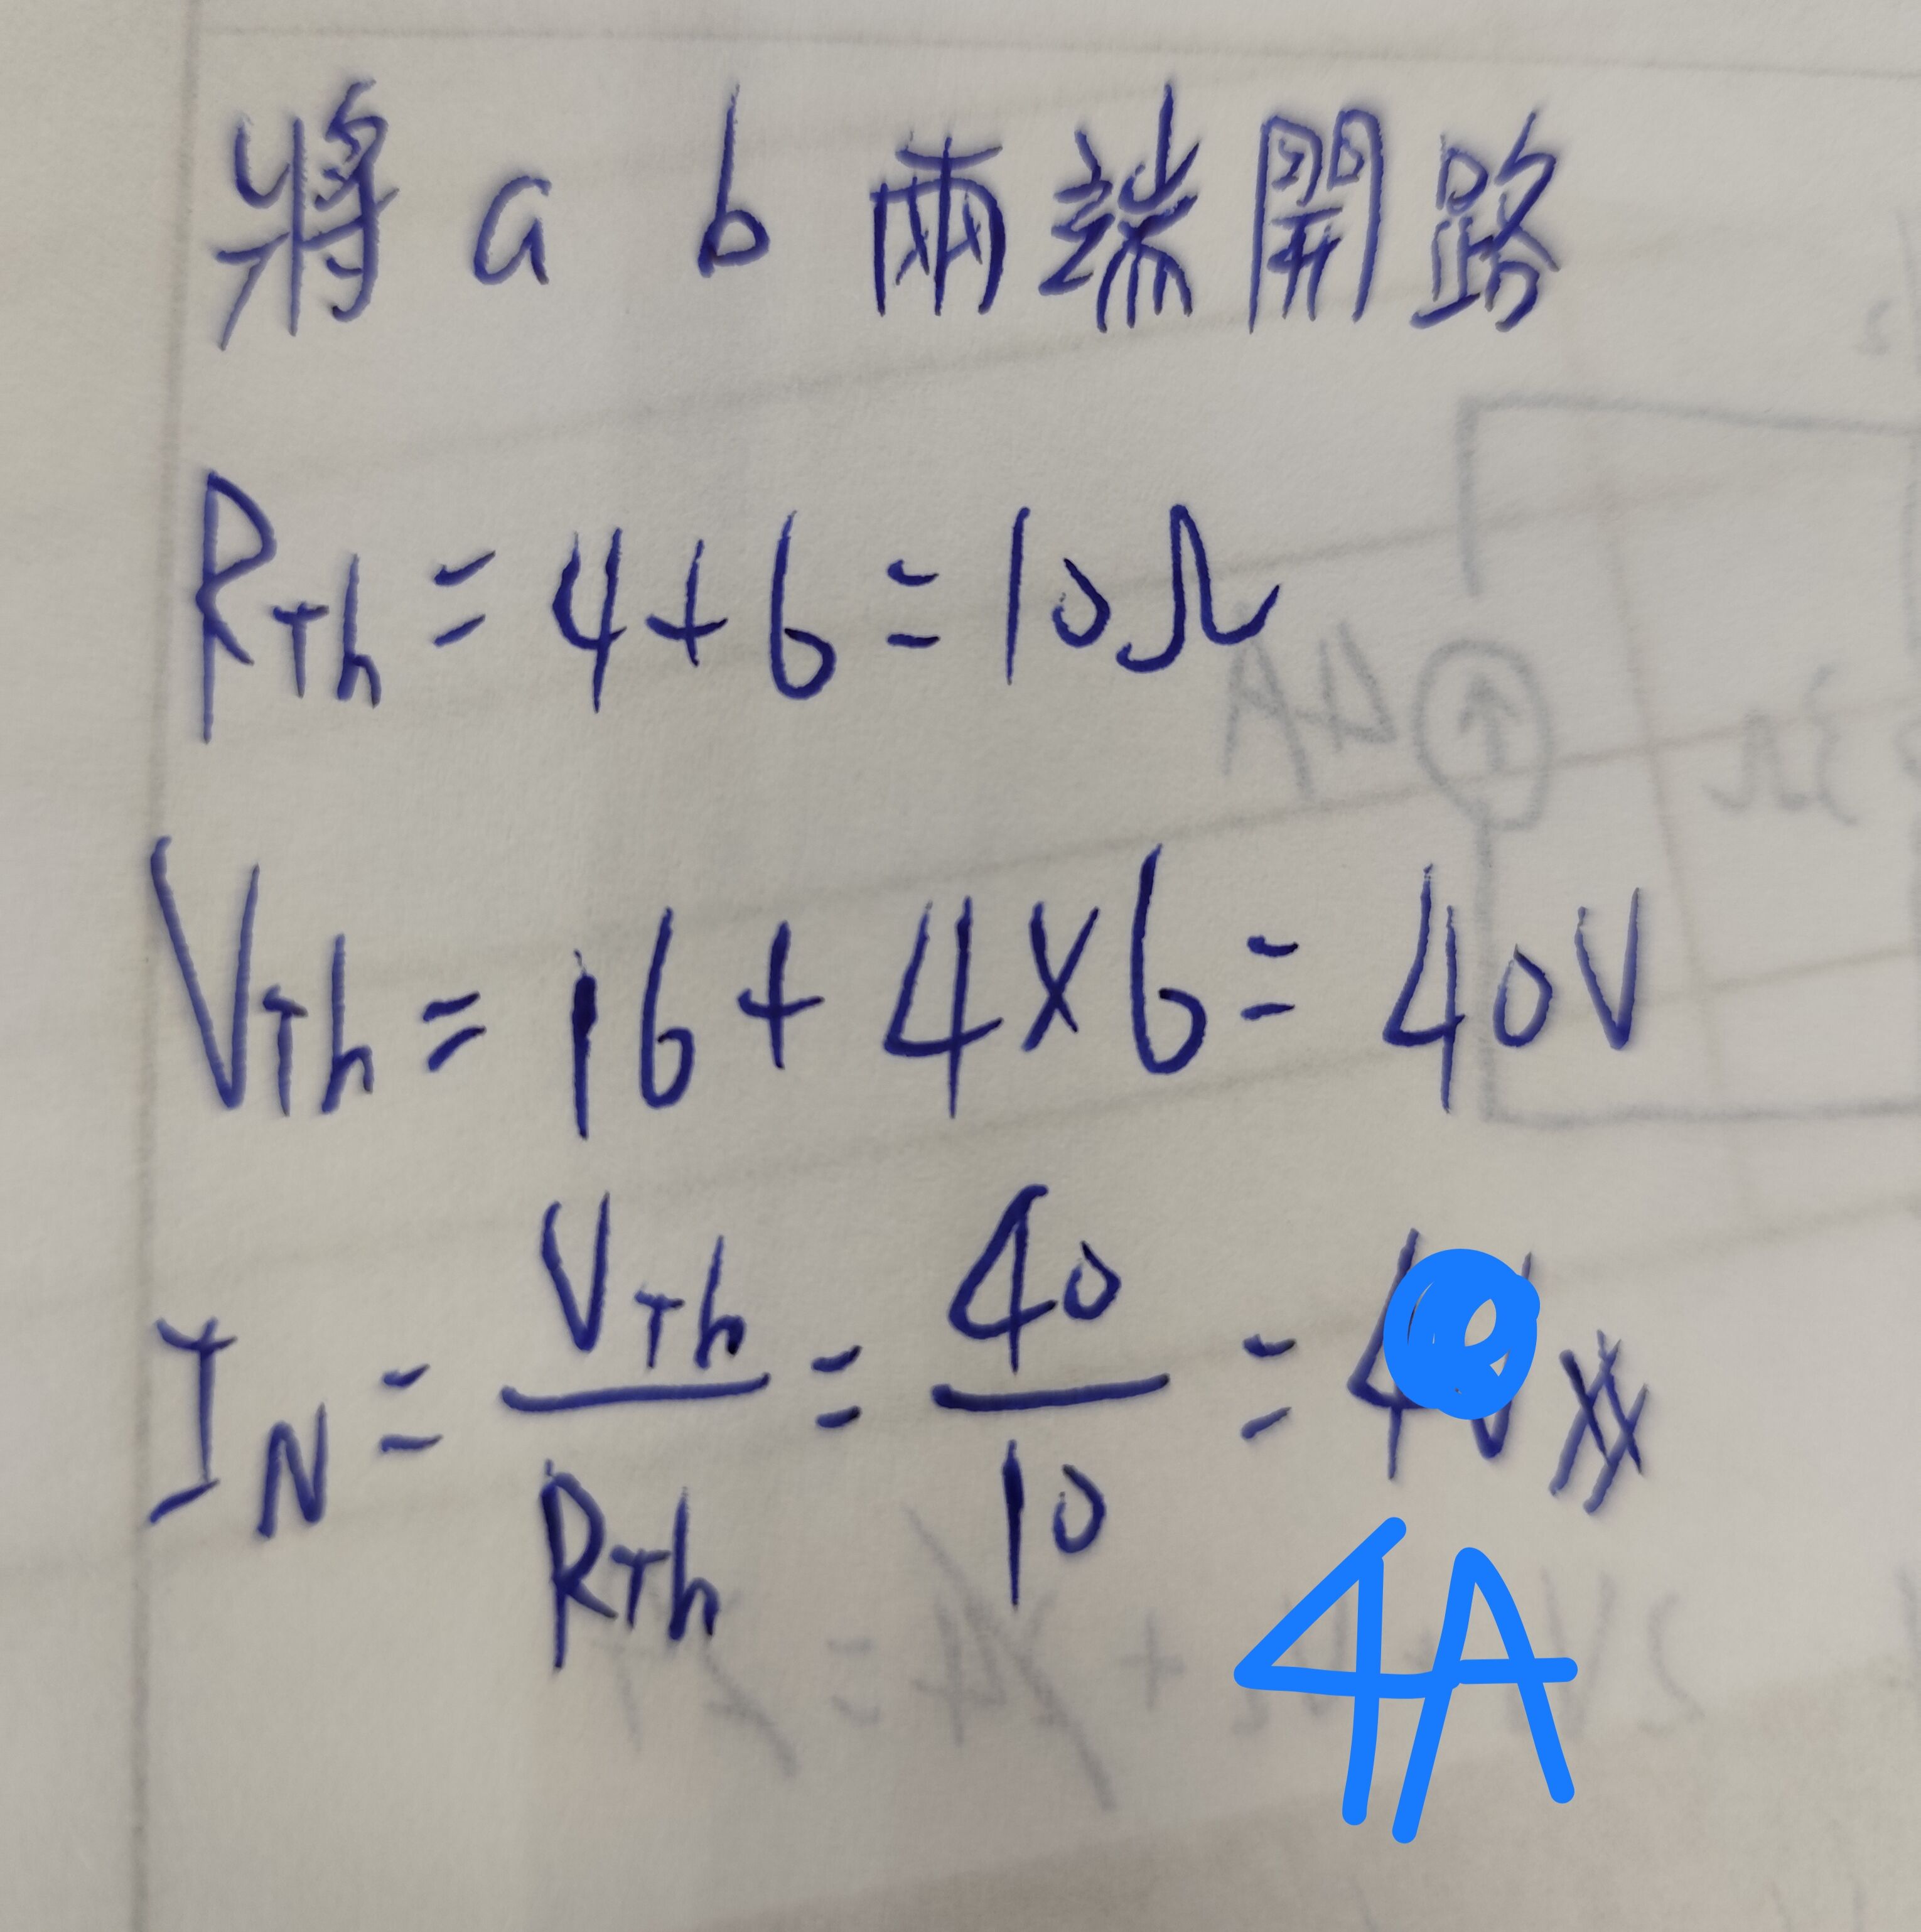 將 a b 兩端開路
R_Th = 4+6 = 10Ω
V_Th = 16 + 4×6 = 40V
I_N = V_Th / R_Th = 40 / 10 = 4
4A